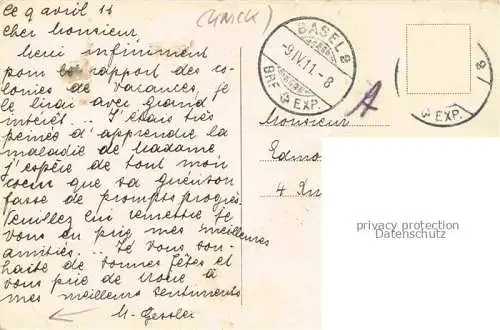 Ce 9 avril 11
Cher Monsieur,
Merci infiniment
pour le rapport des co-
lonies de vacances, je
le lirai avec grand
intérêt... J'étais très
peinée d'apprendre la
maladie de Madame
j'espère de tout mon
coeur que sa guérison
fasse de prompts progrès.
Veuillez lui remettre je
vous en prie mes meilleures
amitiés... Je vous sou-
haite de bonnes fêtes et
vous prie de croire à
mes meilleurs sentiments
M. Gessler
BASEL 2
-9.IV.11.-8
BRF. EXP.
EXP.
A
Monsieur
Edmo
4 Ru
privacy protection
Datenschutz